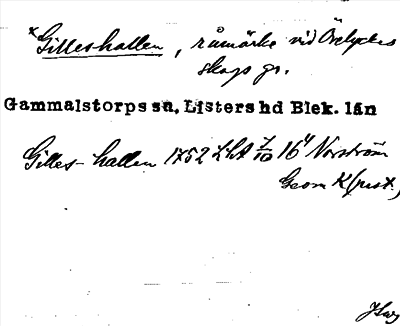 *Gilleshallen, råmärke vid Övelycke
skogs gr.
Gammalstorps sn, Listers hd Blek. län
Gilles-hallen 1752 LhA 7/10 16" Norström
Geom K